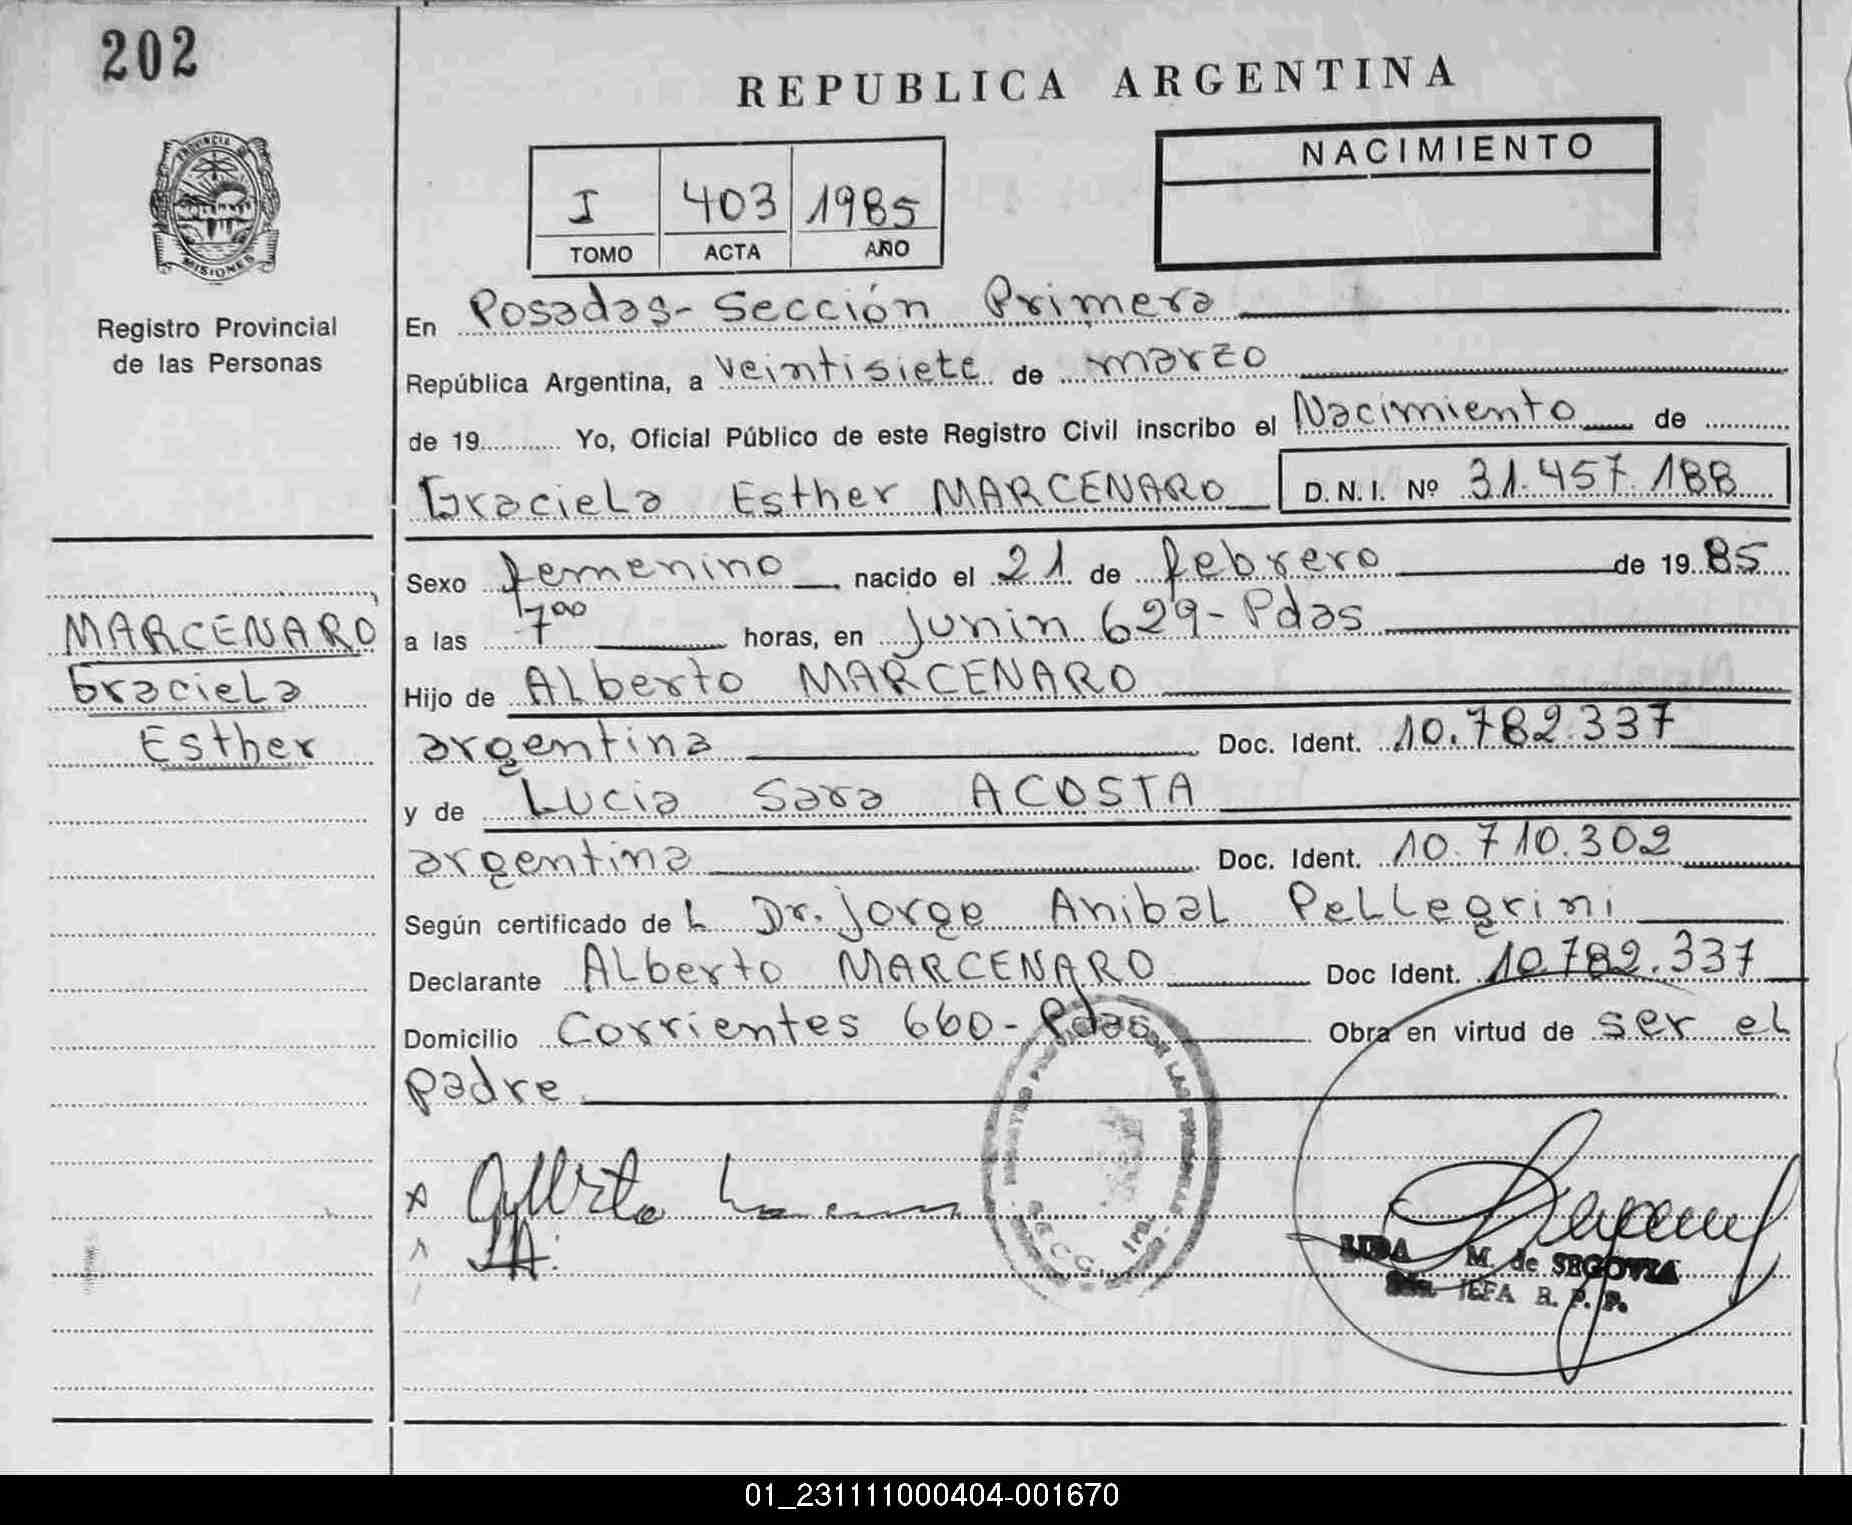 202
REPUBLICA ARGENTINA
PROVINCIA DE
MISIONES
Registro Provincial
de las Personas
I 403 1985
TOMO ACTA AÑO
NACIMIENTO
En Posadas-Sección Primera
República Argentina, a veintisiete de marzo
de 19 Yo, Oficial Público de este Registro Civil inscribo el Nacimiento de
Graciela Esther MARCENARO D.N.I. Nº 31.457.188
Sexo femenino nacido el 21 de febrero de 1985
a las 7⁰⁰ horas, en Junin 629-Pdas
MARCENARO
Graciela
Esther
Hijo de Alberto MARCENARO
argentina Doc. Ident. 10.782.337
y de Lucia Sara ACOSTA
argentina Doc. Ident. 10.710.302
Según certificado de L Dr. Jorge Anibal Pellegrini
Declarante Alberto MARCENARO Doc Ident. 10782.337
Domicilio Corrientes 660-Pdas Obra en virtud de ser el
padre
Alberto
LIDA M. de SEGOVIA
JEFA R. P. P.
01_231111000404-001670